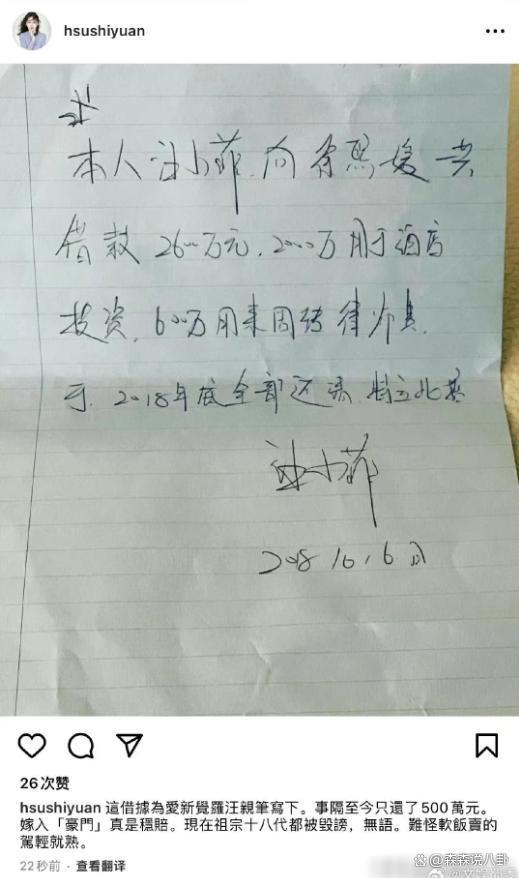 hsushiyuan
本人汪小菲向徐熙媛共
借款2600万元,2000万用于酒店
投资,600万用来周转
于 2018年底全部还清,特立此
汪小菲
2018
26次赞
hsushiyuan 這借據為愛新覺羅汪親筆寫下。事隔至今只還了500萬元。
嫁入「豪門」真是穩賠。現在祖宗十八代都被毀謗,無語。難怪軟飯賣的
駕輕就熟。
22秒前 · 查看翻译
森森说八卦